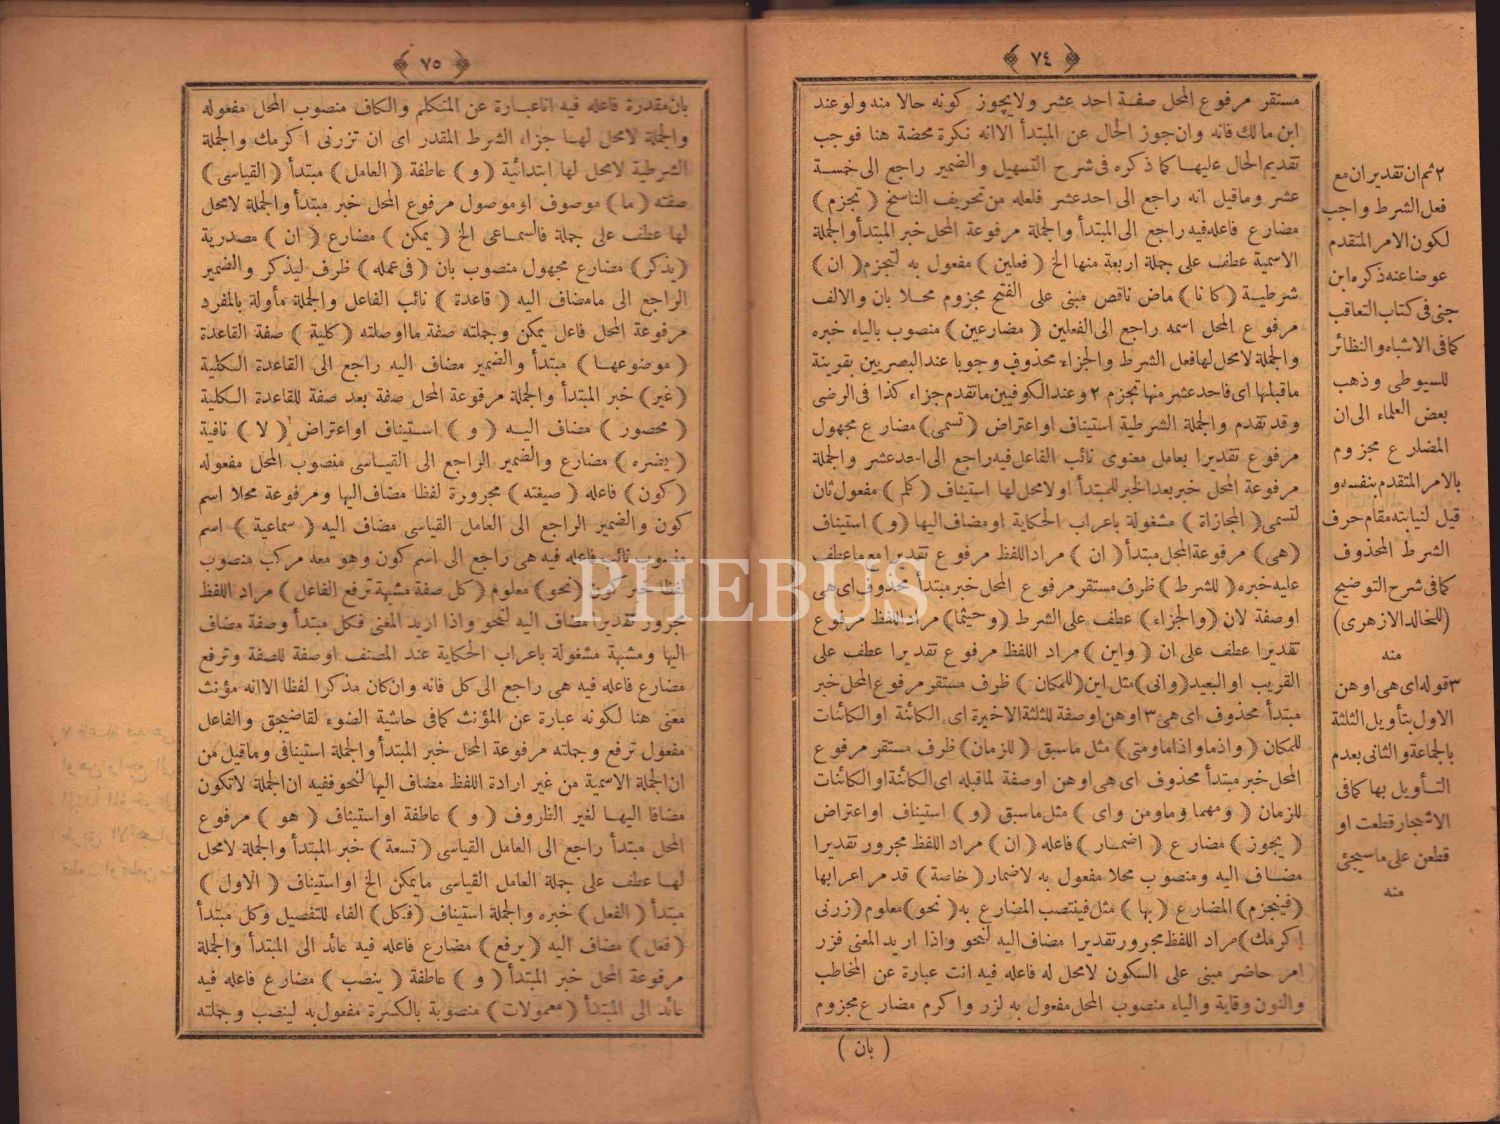 ﴿ ٧٤ ﴾
مستقر مرفوع المحل صفة احد عشر ولايجوز كونه حالا منه ولو عند
ابن مالك فانه وان جوز الحال عن المبتدأ الاانه نكرة محضة هنا فوجب
تقديم الحال عليها كما ذكره فى شرح التسهيل والضمير راجع الى خمسة
عشر وماقيل انه راجع الى احدعشر فلعله من تحريف الناسخ ( تجزم )
مضارع فاعله فيه راجع الى المبتدأ والجملة مرفوعة المحل خبر المبتدأ والجملة
الاسمية عطف على جملة اربعة منها الخ ( فعلين ) مفعول به لتجزم ( ان )
شرطية ( كانا ) ماض ناقص مبنى على الفتح مجزوم محلا بان والالف
مرفوع المحل اسمه راجع الى الفعلين ( مضارعين ) منصوب بالياء خبره
والجملة لامحل لها فعل الشرط والجزاء محذوف وجوبا عند البصريين بقرينة
ماقبلها اى فاحد عشر منها تجزم ٢ وعند الكوفيين ماتقدم جزاء كذا فى الرضى
وقد تقدم والجملة الشرطية استيناف او اعتراض ( تسمى ) مضارع مجهول
مرفوع تقديرا بعامل معنوى نائب الفاعل فيه راجع الى احد عشر والجملة
مرفوعة المحل خبر بعد الخبر للمبتدأ او لامحل لها استيناف ( كلم ) مفعول ثان
لتسمى ( المجازاة ) مشغولة باعراب الحكاية او مضاف اليها ( و ) استيناف
( هى ) مرفوعة المحل مبتدأ ( ان ) مراد اللفظ مرفوع تقديرا مع ماعطف
عليه خبره ( للشرط ) ظرف مستقر مرفوع المحل خبر مبتدأ محذوف اى هى
او صفة لان ( والجزاء ) عطف على الشرط ( وحيثما ) مراد اللفظ مرفوع
تقديرا عطف على ان ( واين ) مراد اللفظ مرفوع تقديرا عطف على
القريب او البعيد ( وانى ) مثل اين ( للمكان ) ظرف مستقر مرفوع المحل خبر
مبتدأ محذوف اى هى ٣ اوهن او صفة للثلثة الاخيرة اى الكائنة او الكائنات
للمكان ( واذما واذاما ومتى ) مثل ماسبق ( للزمان ) ظرف مستقر مرفوع
المحل خبر مبتدأ محذوف اى هى اوهن او صفة لماقبله اى الكائنة او الكائنات
للزمان ( ومهما وما ومن واى ) مثل ماسبق ( و ) استيناف او اعتراض
( يجوز ) مضارع ( اضمار ) فاعله ( ان ) مراد اللفظ مجرور تقديرا
مضاف اليه ومنصوب محلا مفعول به لاضمار ( خاصة ) قد مر اعرابها
( فينجزم ) المضارع ( بها ) مثل فينتصب المضارع به ( نحو ) معلوم ( زرنى
اكرمك ) مراد اللفظ مجرور تقديرا مضاف اليه لنحو واذا اريد المعنى فزر
امر حاضر مبنى على السكون لامحل له فاعله فيه انت عبارة عن المخاطب
والنون وقاية والياء منصوب المحل مفعول به لزر واكرم مضارع مجزوم
( بان )
٢ ثم ان تقدير ان مع
فعل الشرط واجب
لكون الامر المتقدم
عوضا عنه ذكره ابن
جنى فى كتاب التعاقب
كما فى الاشباه والنظائر
للسيوطى وذهب
بعض العلماء الى ان
المضارع مجزوم
بالامر المتقدم بنفسه و
قيل لنيابته مقام حرف
الشرط المحذوف
كما فى شرح التوضيح
( للخالد الازهرى )
منه
٣ قوله اى هى اوهن
الاول بتأويل الثلثة
بالجماعة والثانى بعدم
التأويل بها كما فى
الاشجار قطعت او
قطعن على ماسيجئ
منه
﴿ ٧٥ ﴾
بان مقدرة فاعله فيه انا عبارة عن المتكلم والكاف منصوب المحل مفعوله
والجملة لامحل لها جزاء الشرط المقدر اى ان تزرنى اكرمك والجملة
الشرطية لامحل لها ابتدائية ( و ) عاطفة ( العامل ) مبتدأ ( القياسى )
صفته ( ما ) موصوف او موصول مرفوع المحل خبر مبتدأ والجملة لامحل
لها عطف على جملة فالسماعى الخ ( يمكن ) مضارع ( ان ) مصدرية
( يذكر ) مضارع مجهول منصوب بان ( فى عمله ) ظرف ليذكر والضمير
الراجع الى ما مضاف اليه ( قاعدة ) نائب الفاعل والجملة مأولة بالمفرد
مرفوعة المحل فاعل يمكن وجملته صفة ما او صلته ( كلية ) صفة القاعدة
( موضوعها ) مبتدأ والضمير مضاف اليه راجع الى القاعدة الكلية
( غير ) خبر المبتدأ والجملة مرفوعة المحل صفة بعد صفة للقاعدة الكلية
( محصور ) مضاف اليه ( و ) استيناف او اعتراض ( لا ) نافية
( يضره ) مضارع والضمير الراجع الى القياسى منصوب المحل مفعوله
( كون ) فاعله ( صيغته ) مجرورة لفظا مضاف اليها ومرفوعة محلا اسم
كون والضمير الراجع الى العامل القياسى مضاف اليه ( سماعية ) اسم
منسوب نائب فاعله فيه هى راجع الى اسم كون وهو معه مركب منصوب
لفظا خبر كون ( نحو ) معلوم ( كل صفة مشبهة ترفع الفاعل ) مراد اللفظ
مجرور تقديرا مضاف اليه لنحو واذا اريد المعنى فكل مبتدأ وصفة مضاف
اليها ومشبهة مشغولة باعراب الحكاية عند المصنف او صفة للصفة وترفع
مضارع فاعله فيه هى راجع الى كل فانه وان كان مذكرا لفظا الاانه مؤنث
معنى هنا لكونه عبارة عن المؤنث كما فى حاشية الضوء لقاضيجق والفاعل
مفعول ترفع وجملته مرفوعة المحل خبر المبتدأ والجملة استينافى وماقيل من
ان الجملة الاسمية من غير ارادة اللفظ مضاف اليها لنحو ففيه ان الجملة لاتكون
مضافا اليها لغير الظروف ( و ) عاطفة او استيناف ( هو ) مرفوع
المحل مبتدأ راجع الى العامل القياسى ( تسعة ) خبر المبتدأ والجملة لامحل
لها عطف على جملة العامل القياسى مايمكن الخ او استيناف ( الاول )
مبتدأ ( الفعل ) خبره والجملة استيناف ( فكل ) الفاء للتفصيل وكل مبتدأ
( فعل ) مضاف اليه ( يرفع ) مضارع فاعله فيه عائد الى المبتدأ والجملة
مرفوعة المحل خبر المبتدأ ( و ) عاطفة ( ينصب ) مضارع فاعله فيه
عائد الى المبتدأ ( معمولات ) منصوبة بالكسرة مفعول به لينصب وجملته
PHEBUS